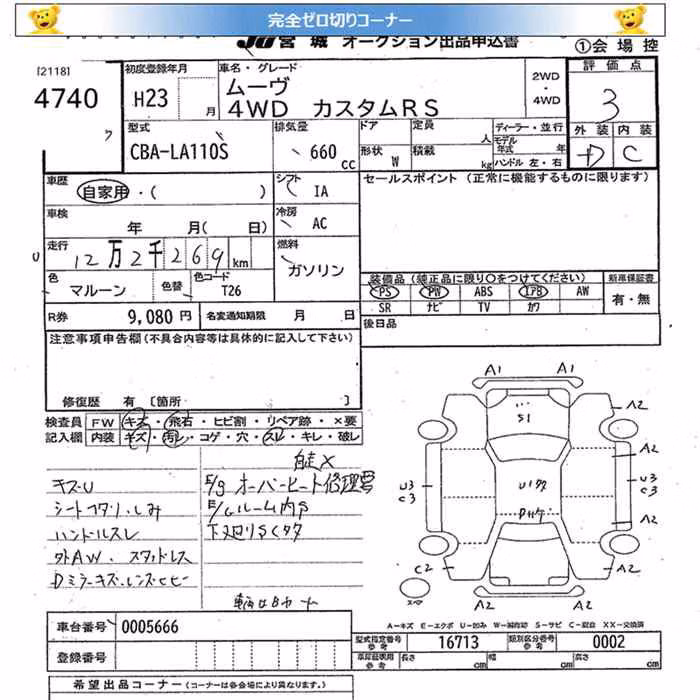 完全ゼロ切りコーナー
JU 宮城 オークション出品申込書 ①会場控
[2118]
4740
初度登録年月
H23 月
車名・グレード
ムーヴ
4WD カスタムRS
2WD
・
4WD
評価点
3
外装 内装
D C
型式
CBA-LA110S
排気量
660 cc
ドア 定員 人
形状 W 積載 kg
ディーラー・並行
モデル年式 年
ハンドル 左・右
車歴
自家用・( )
シフト
IA
セールスポイント (正常に機能するものに限ります)
車検
年 月( 日)
冷房
AC
走行
12万2千269km
燃料
ガソリン
色
マルーン
色替
色コード
T26
装備品(純正品に限り○をつけてください)
PS PW ABS エアB AW
SR ナビ TV カワ
新車保証書
有・無
R券 9,080円
名変通知期限 月 日
後日品
注意事項申告欄(不具合内容等は具体的に記入して下さい)
修復歴 有 [箇所 ]
検査員 FW キズ・飛石・ヒビ割・リペア跡・×要
記入欄 内装 キズ・汚レ・コゲ・穴・スレ・キレ・破レ
自走X
キズU
E/g オーバーヒート修理要
シートコゲ穴・しみ
E/gルーム内S
ハンドルスレ
下廻りSCタタ
外AW・スタッドレス
Dミラーキズ・レンズヒビ
A1 A1
S1
A2
A2
U3
C3
U1タタ
U3
C3
A2
C2
A2
A2 A2
A=キズ E=エクボ U=凹み W=補修跡 S=サビ C=腐食 XX=交換済
車台番号 0005666
登録番号
型式指定番号 16713 類別区分番号 0002
車庫証明用参考 長さ cm 幅 cm 高さ cm
希望出品コーナー (コーナーは各会場により異なります。)